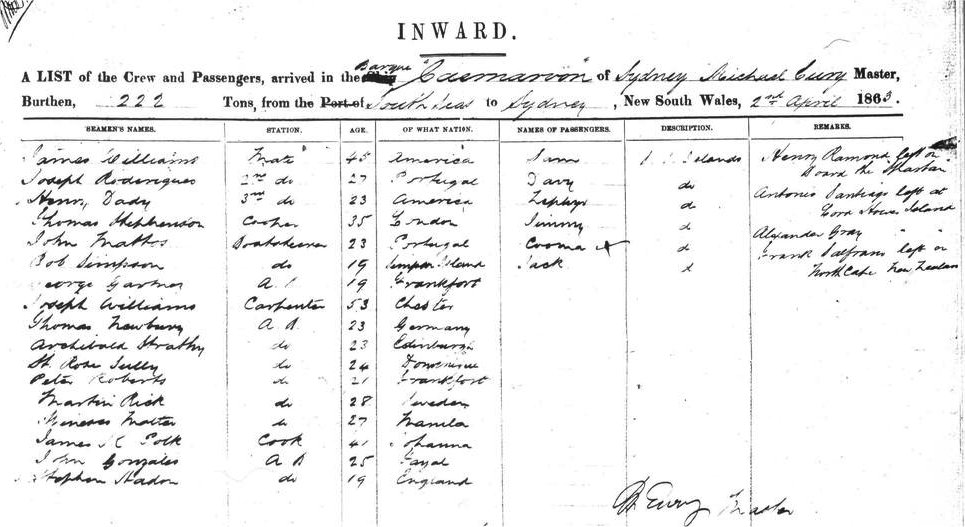 INWARD.
A LIST of the Crew and Passengers, arrived in the Barque "Caernarvon" of Sydney Michael Eury Master,
Burthen, 222 Tons, from the Port of South Seas to Sydney, New South Wales, 2nd April 1863.
SEAMEN'S NAMES. STATION. AGE. OF WHAT NATION. NAMES OF PASSENGERS. DESCRIPTION. REMARKS.
James Williams Mate 45 America Sam S. S. Islands Henry Ramond left on
Board the Martin
Joseph Roderigues 2nd do 27 Portugal Davy do Antonio left at
Henry Dady 3rd do 23 America Zephyr d Lord Howes Island
Thomas Stephenson Cooper 35 London Jimmy d Alexander Gray " "
John Mattos Boatsteerer 23 Portugal Cooma d Frank left on
Bob Simpson do 19 Island Jack d North Cape New Zealand
George Gartner A.B 19 Frankfort
Joseph Williams Carpenter 53 Chester
Thomas Newbury A. B 23 Germany
Archibald Strathy do 23 Edinburgh
St. Rose Jully do 24 Dominique
Peter Roberts d 21 Frankfort
Martin Rick do 28 Sweden
Molter do 27 Manila
James K Polk Cook 41 Johanna
John Gonzales A B 25 Fayal
Stephen Hadon do 19 England
M Eury Master